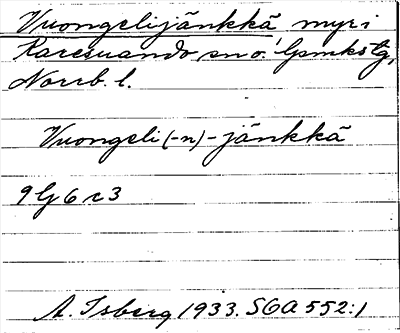 Vuongelijänkkä myr i
Karesuando sn o. lpmkstg,
Norrb. l.
Vuongeli (-n) - jänkkä
9 lj 6 r 3
A. Isberg 1933. SOA 552:1